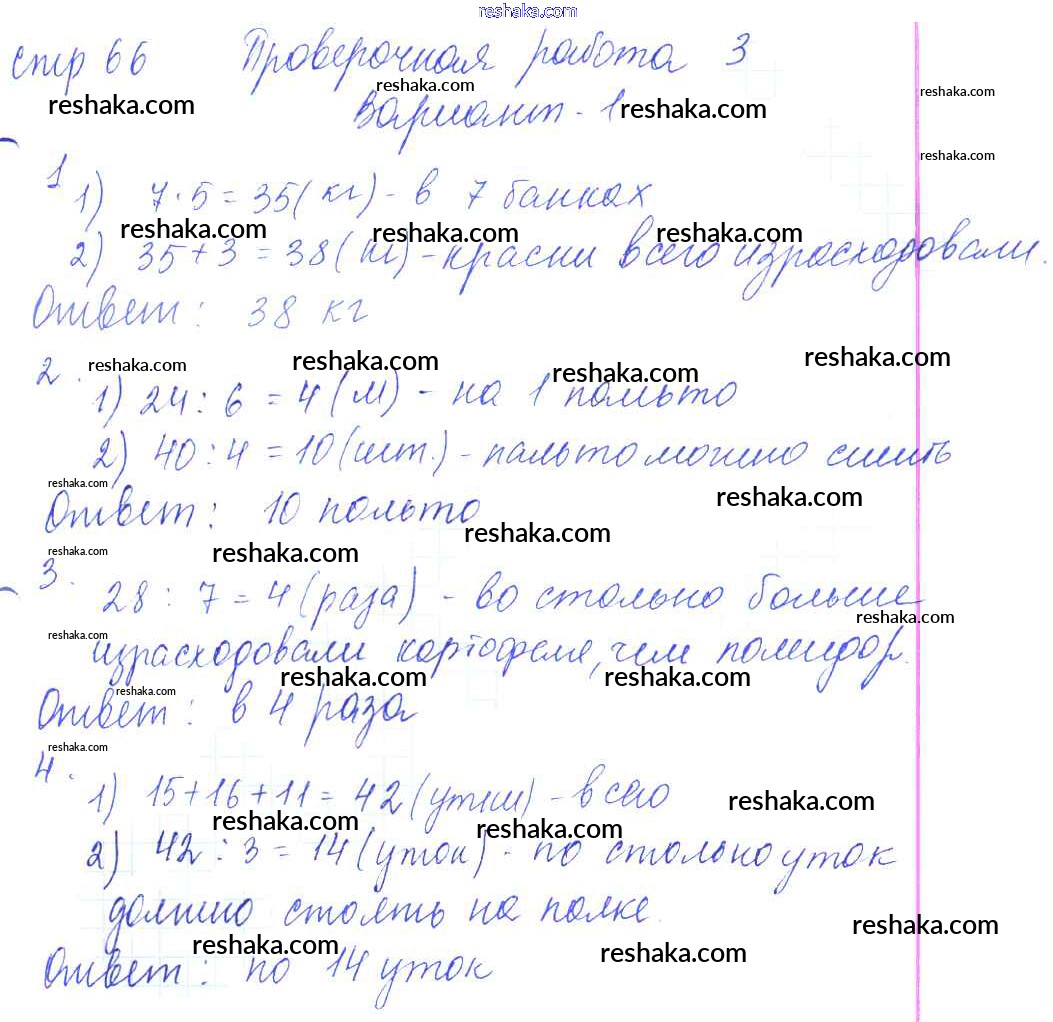 reshaka.com
стр 66 Проверочная работа 3
reshaka.com reshaka.com reshaka.com
Вариант - 1 reshaka.com
reshaka.com
1
1) 7·5=35(кг) - в 7 банках
reshaka.com reshaka.com reshaka.com
2) 35+3=38(кг) - краски всего израсходовали.
Ответ: 38 кг
reshaka.com reshaka.com reshaka.com reshaka.com
2.
1) 24:6=4(м) - на 1 пальто
2) 40:4=10(шт.) - пальто можно сшить
reshaka.com reshaka.com
Ответ: 10 пальто
reshaka.com reshaka.com reshaka.com
3.
28:7=4(раза) - во столько больше
reshaka.com reshaka.com
израсходовали картофеля, чем помидор.
reshaka.com reshaka.com reshaka.com
Ответ: в 4 раза
reshaka.com
4.
1) 15+16+11=42(утки) - всего
reshaka.com reshaka.com reshaka.com
2) 42:3=14(уток) - по столько уток
должно стоять на полке.
reshaka.com reshaka.com reshaka.com
Ответ: по 14 уток